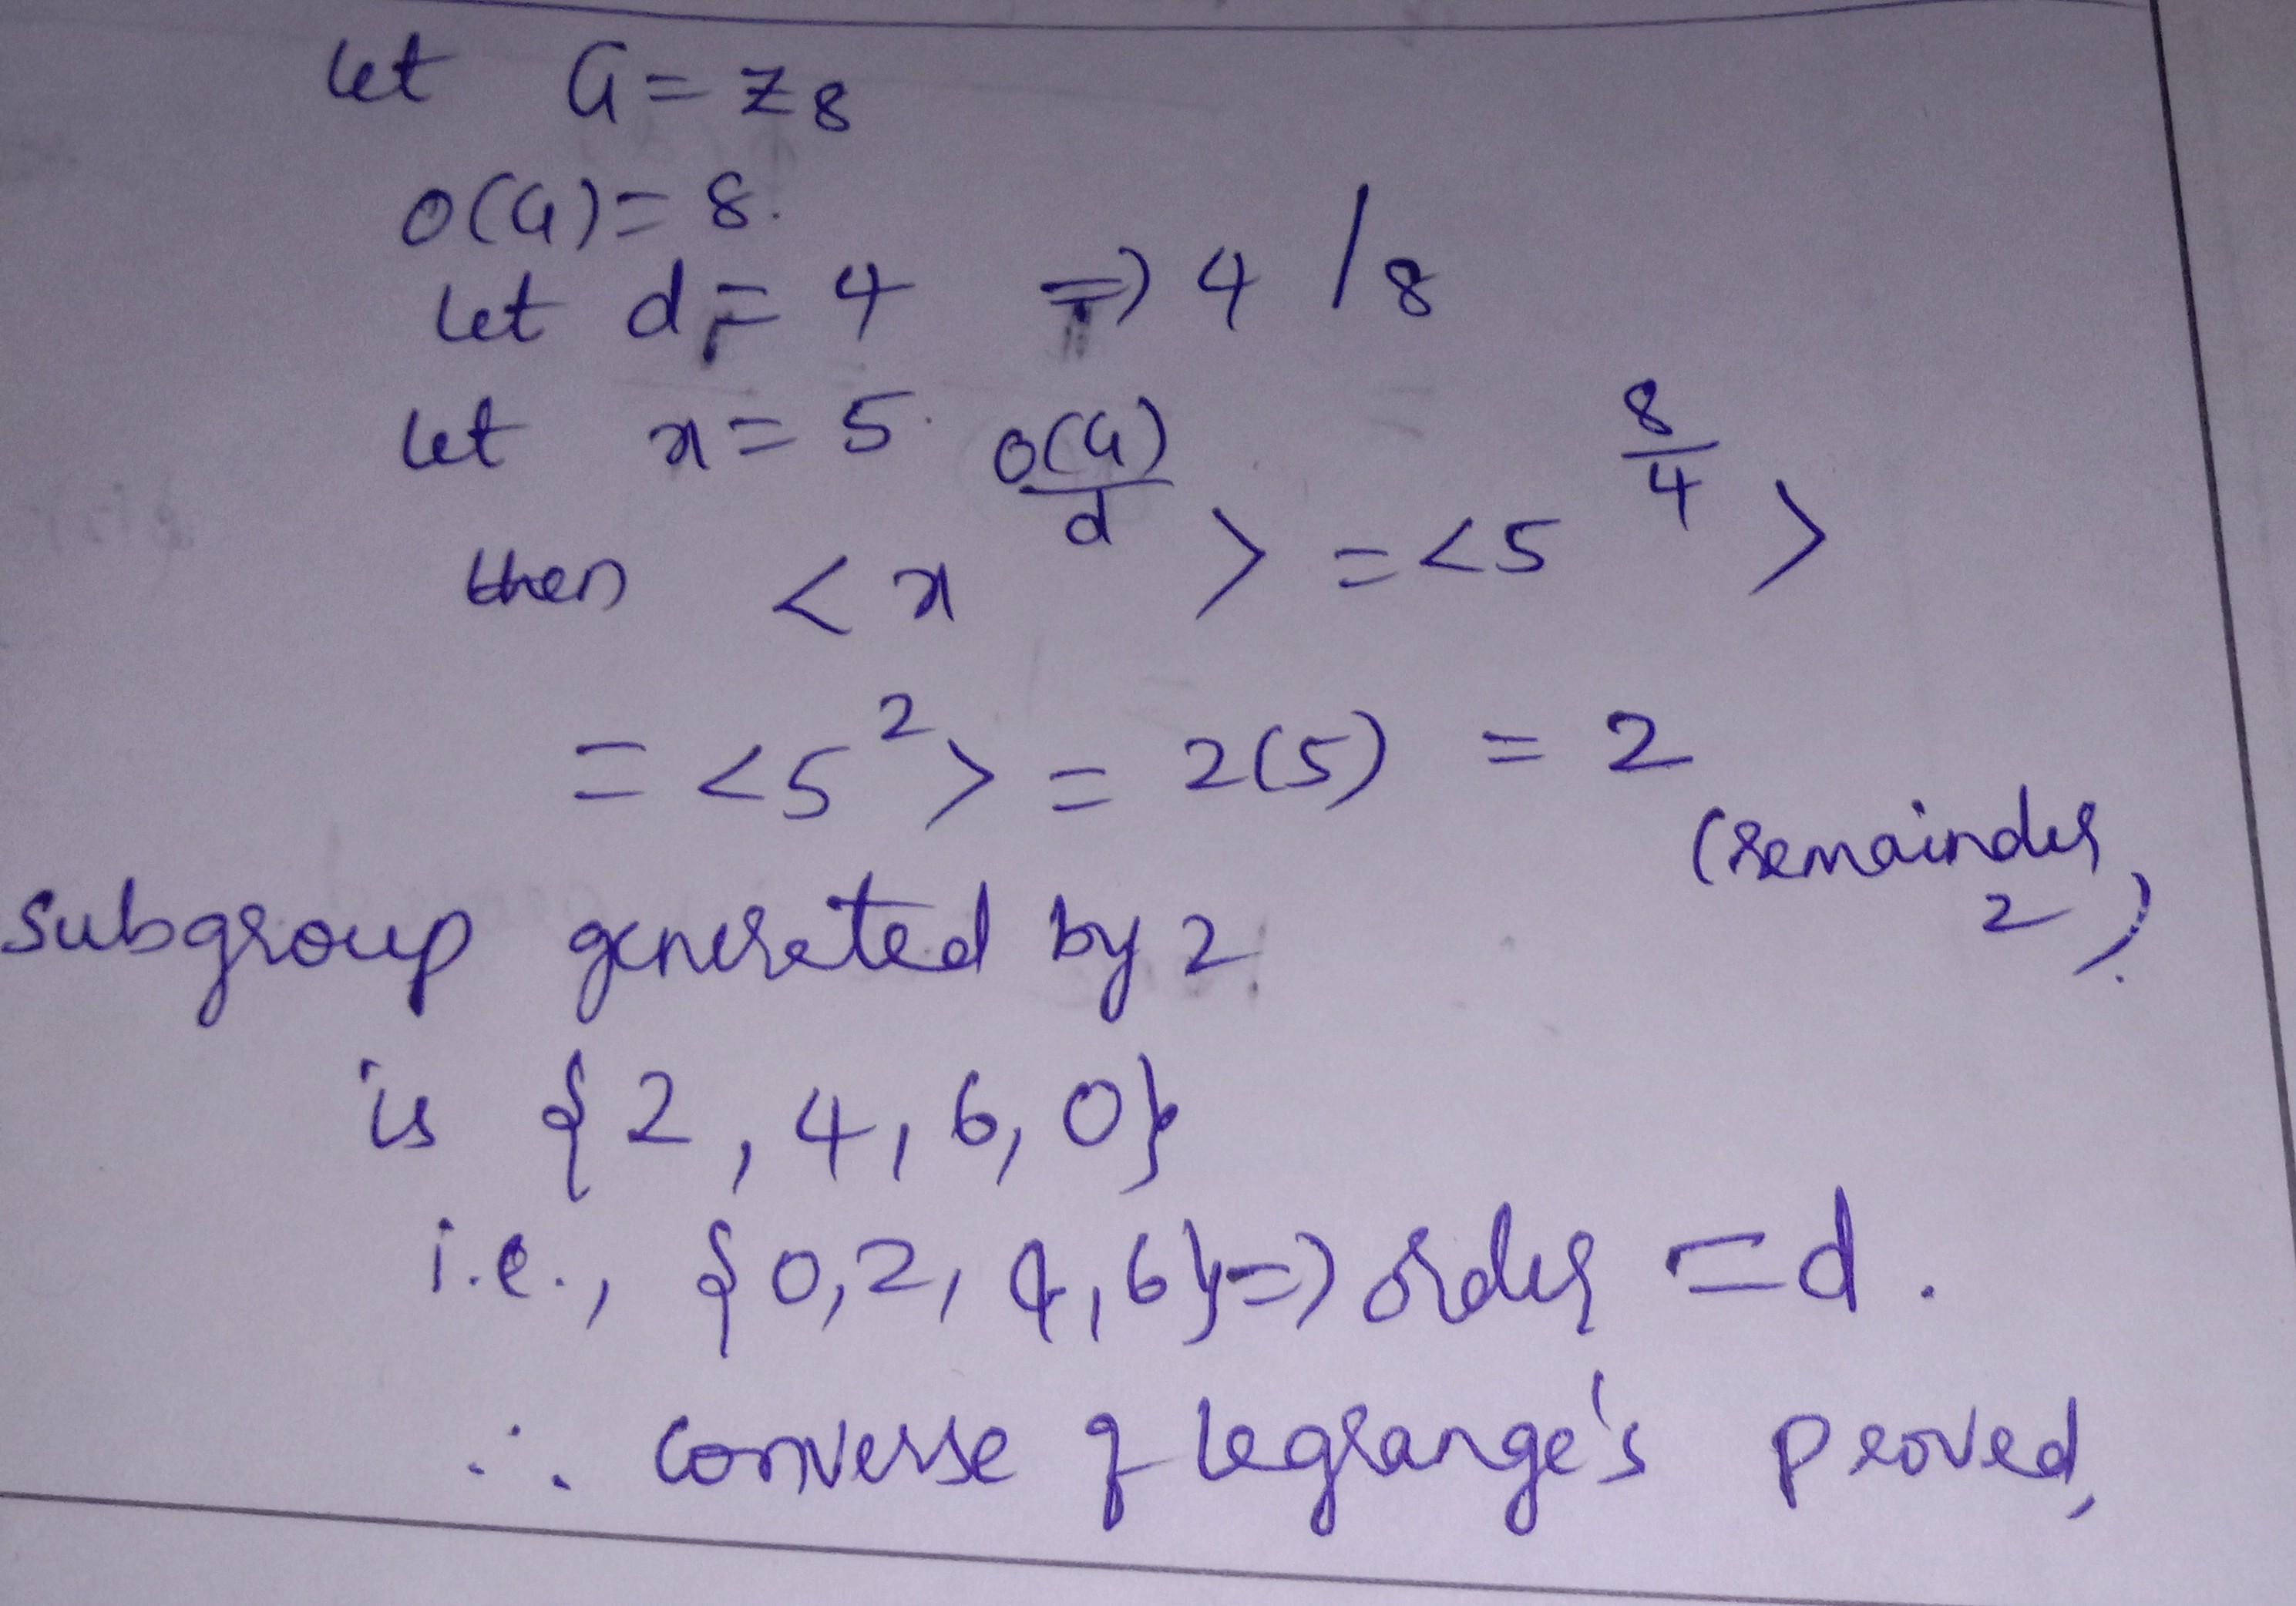 let G = Z8
o(G) = 8.
let d = 4 ⇒ 4 / 8
let x = 5.
then < x^(o(G)/d) > = < 5^(8/4) >
= < 5^2 > = 2(5) = 2
(remainder 2).
subgroup generated by 2
is {2, 4, 6, 0}
i.e., {0, 2, 4, 6} ⇒ order = d.
∴ converse of legrange's proved,